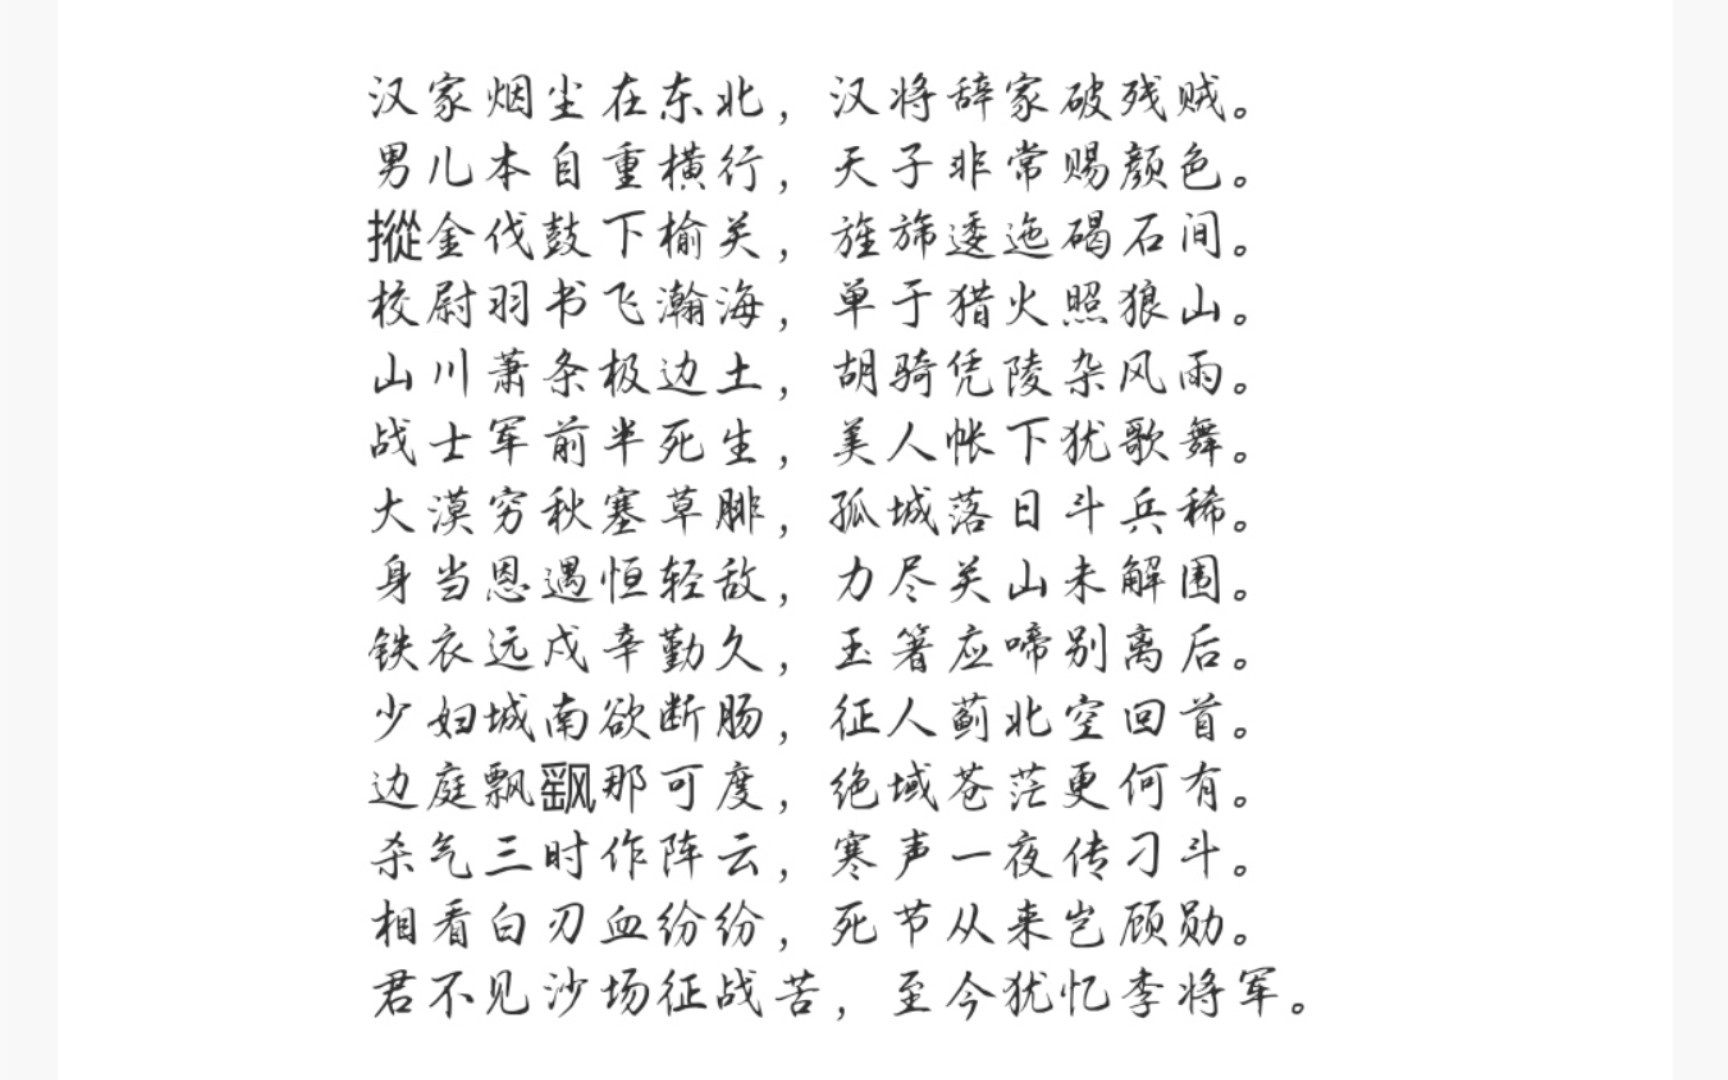 汉家烟尘在东北，汉将辞家破残贼。
男儿本自重横行，天子非常赐颜色。
摐金伐鼓下榆关，旌旆逶迤碣石间。
校尉羽书飞瀚海，单于猎火照狼山。
山川萧条极边土，胡骑凭陵杂风雨。
战士军前半死生，美人帐下犹歌舞。
大漠穷秋塞草腓，孤城落日斗兵稀。
身当恩遇恒轻敌，力尽关山未解围。
铁衣远戍辛勤久，玉箸应啼别离后。
少妇城南欲断肠，征人蓟北空回首。
边庭飘飖那可度，绝域苍茫更何有。
杀气三时作阵云，寒声一夜传刁斗。
相看白刃血纷纷，死节从来岂顾勋。
君不见沙场征战苦，至今犹忆李将军。